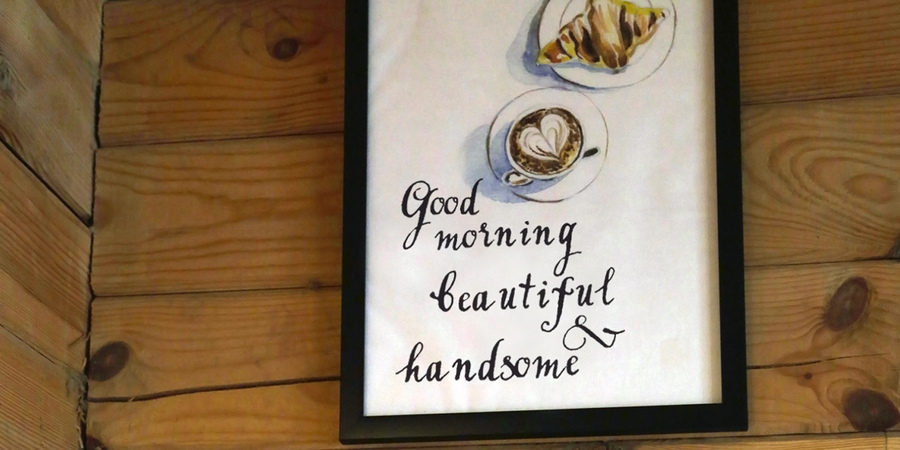 Good
morning
beautiful
&
handsome